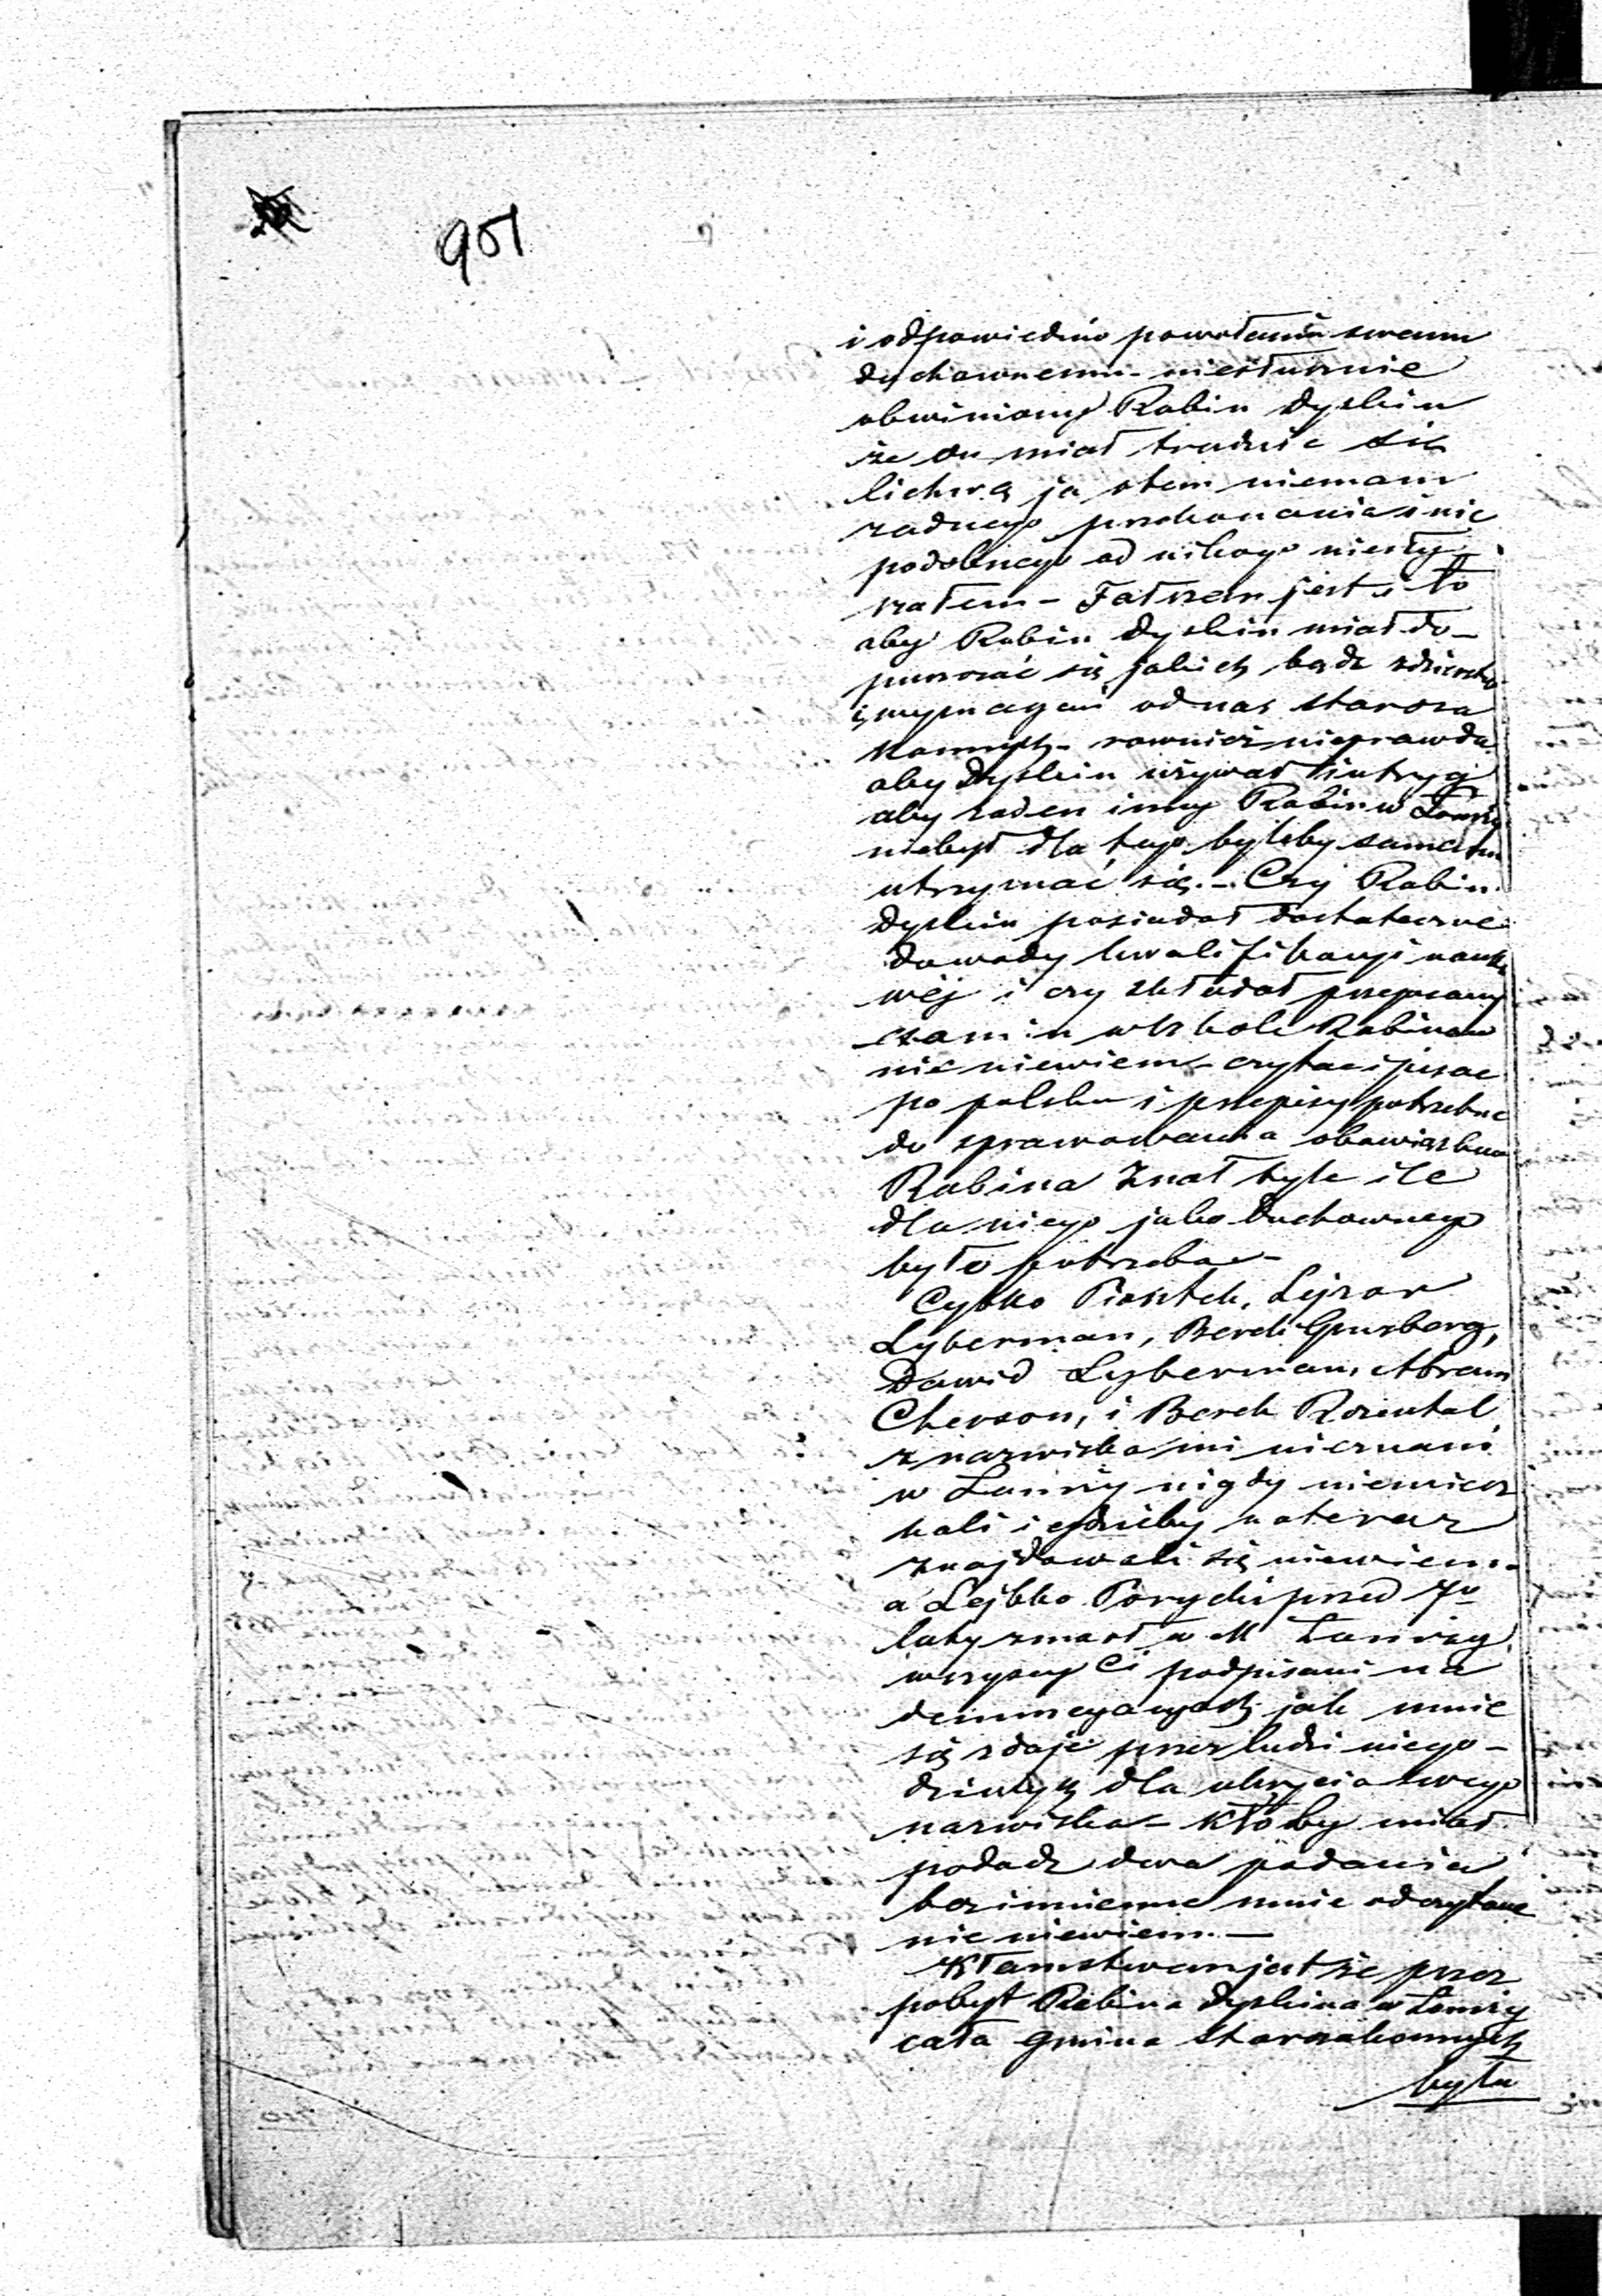 901
i odpowiednio powołaniu swemu
duchownemu - niesłusznie
obwiniony Rabin Dyskin
że on miał trudnić się
lichwą ja otem niemam
żadnego przekonania i nic
podobnego od nikogo niesły
szałem - Fałszem jest i to
aby Rabin Dyskin miał do-
puszczać się jakich bądź zdzierstw
i wymagań od nas staroza
konnych - rownież nieprawda
aby Dyskin używał intryg
aby żaden inny Rabin w Łomży
niebył dla tego byleby samemu
utrzymać się. - Czy Rabin
Dyskin posiadał dostateczne
dowody kwalifikacyi nauko
wéj i czy składał przepisany
exam in w Szkole Rabinow
nic niewiem - czytac i pisac
po polsku i przepisy potrzebne
do sprawowania obowiązkow
Rabina znał tyle ile
dla niego jako Duchownego
było potrzeba -
Cybko Piontek, Lejzor
Lyberman, Berek Ginzberg,
Dawid Lyberman, Abram
Cherson, i Berek Rozental
z nazwiska mi nieznani
w Łomży nigdy niemiesz
kali i gdzieby na teraz
znajdowali się niewiem -
a Lejbko Porycki przed 7u
laty zmarł w M Łomży
wszyscy Ci podpisani na
denuncyacyach jak mnie
się zdaje przez ludzi niego-
dziwych dla ukrycia swego
nazwiska - Ktoby miał
podać dwa podania
bezimienne mnie odczytane
nic niewiem. -
Kłamstwem jest że przez
pobyt Rabina Dyskina w Łomży
cała gmina starozakonnych
była